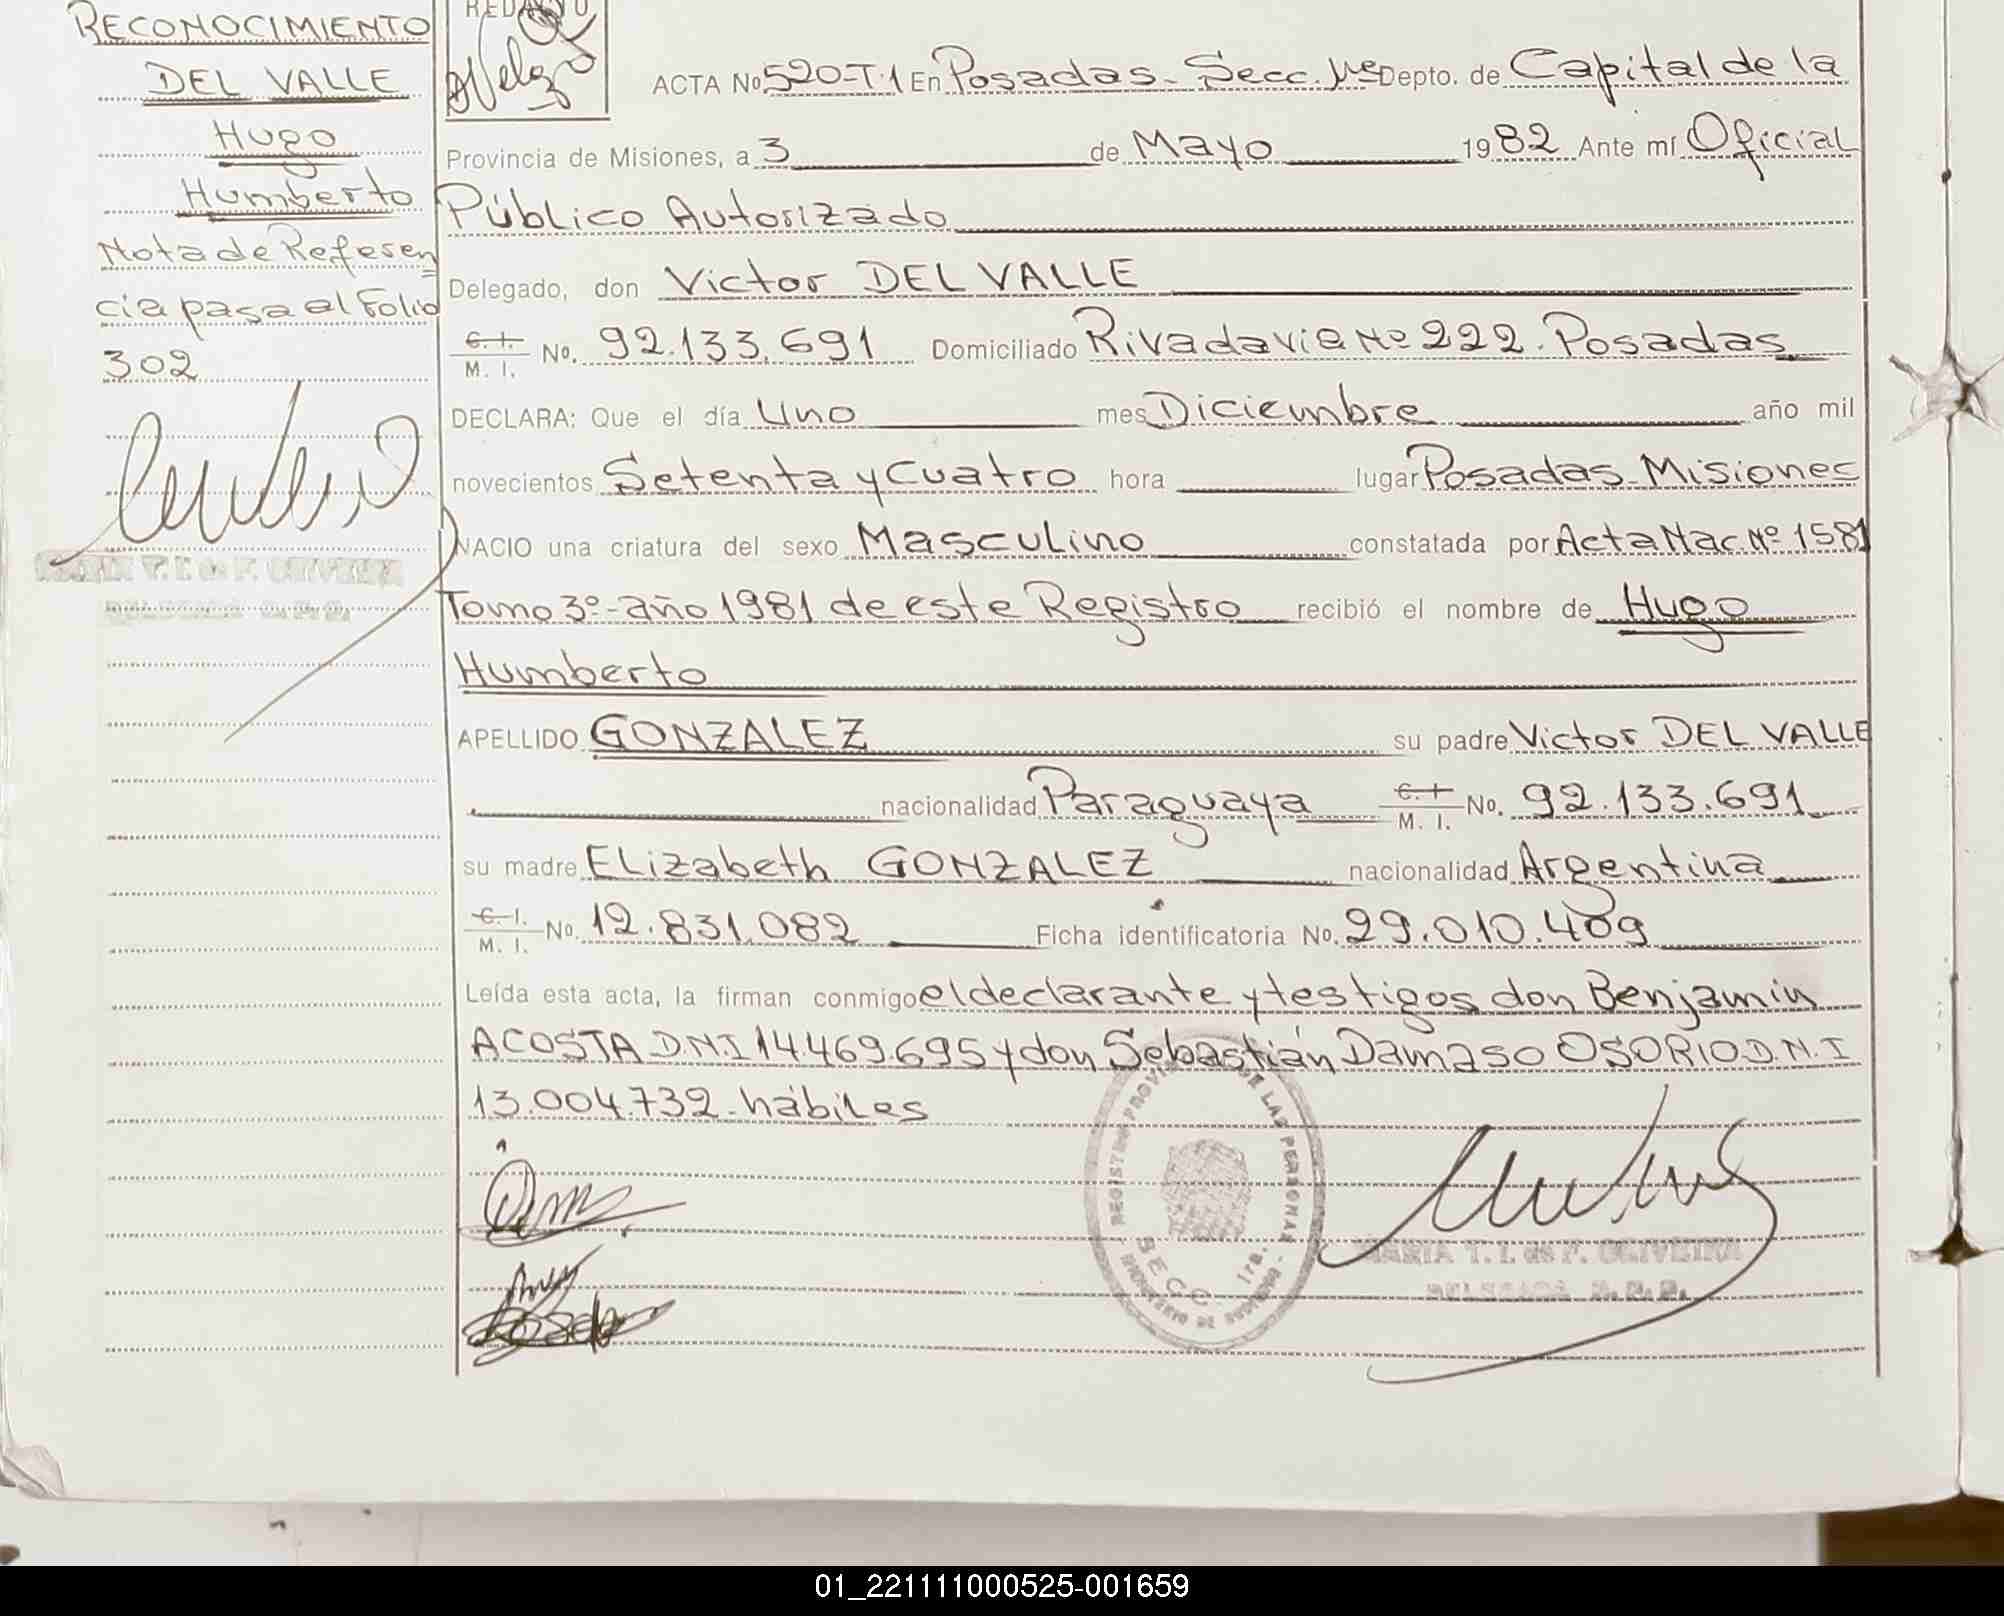 RECONOCIMIENTO
DEL VALLE
Hugo
Humberto
Nota de Referen
cia pasa al Folio
302
REDACTO
ACTA No 520-T.1 En Posadas-Secc. 1ra Depto. de Capital de la
Provincia de Misiones, a 3 de Mayo 1982 Ante mí Oficial
Público Autorizado
Delegado, don Victor DEL VALLE
C. I. / M. I. No. 92.133.691 Domiciliado Rivadavia Nº 222. Posadas
DECLARA: Que el día Uno mes Diciembre año mil
novecientos Setenta y Cuatro hora lugar Posadas-Misiones
NACIO una criatura del sexo Masculino constatada por Acta Nac. Nº 1581
Tomo 3º-año 1981 de este Registro recibió el nombre de Hugo
Humberto
APELLIDO GONZALEZ su padre Victor DEL VALLE
nacionalidad Paraguaya C. I. / M. I. No. 92.133.691
su madre Elizabeth GONZALEZ nacionalidad Argentina
C. I. / M. I. No. 12.831.082 Ficha identificatoria No. 29.010.409
Leída esta acta, la firman conmigo el declarante y testigos don Benjamin
ACOSTA D.N.I 14.469.695 y don Sebastián Damaso OSORIO D.N.I
13.004.732-hábiles
REGISTRO PROVINCIAL DE LAS PERSONAS
SECC. 1ra.
MINISTERIO DE GOBIERNO
MARIA T. I. de F. OLIVEIRA
DELEGADA R.P.P.
01_221111000525-001659